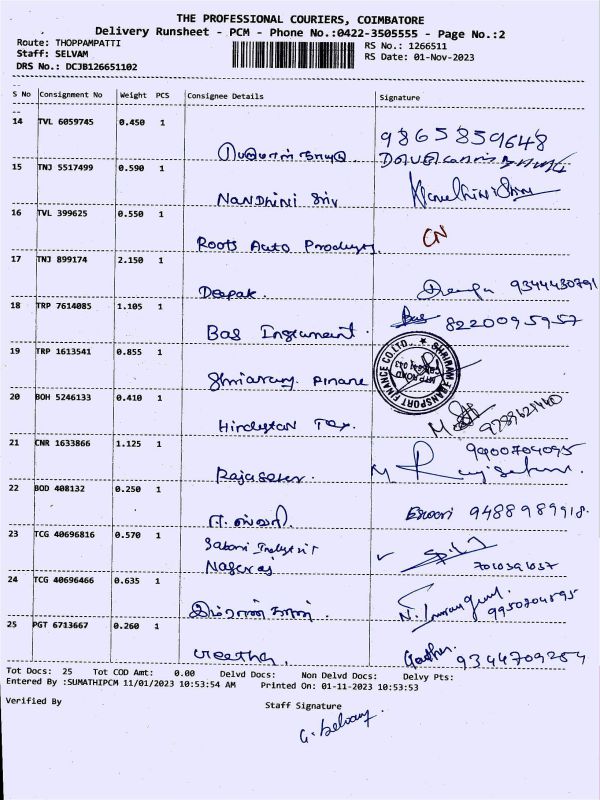 THE PROFESSIONAL COURIERS, COIMBATORE
Delivery Runsheet - PCM - Phone No.:0422-3505555 - Page No.:2
Route: THOPPAMPATTI RS No.: 1266511
Staff: SELVAM RS Date: 01-Nov-2023
DRS No.: DCJB126651102
S No Consignment No Weight PCS Consignee Details Signature
14 TVL 6059745 0.450 1
9865859648
15 TNJ 5517499 0.590 1
Nandhini Sriv
16 TVL 399625 0.550 1
Roots Auto Products CN
17 TNJ 899174 2.150 1
Deepak. 9344430791
18 TRP 7614085 1.105 1
Bas Instrument. Bas 8220095957
19 TRP 1613541 0.855 1
SHRIRAM TRANSPORT FINANCE CO LTD
20 BOH 5246133 0.410 1
Hindustan Tex.
21 CNR 1633866 1.125 1
Rajasekar. 9900704095
22 BOD 408132 0.250 1
Eswari 9488989918.
23 TCG 40696816 0.570 1
Nagaraj
24 TCG 40696466 0.635 1
இம்ரான்கான்.
25 PGT 6713667 0.260 1
Geetha. Geetha. 9344709254
Tot Docs: 25 Tot COD Amt: 0.00 Delvd Docs: Non Delvd Docs: Delvy Pts:
Entered By :SUMATHIPCM 11/01/2023 10:53:54 AM Printed On: 01-11-2023 10:53:53
Verified By Staff Signature
G. Selvam.